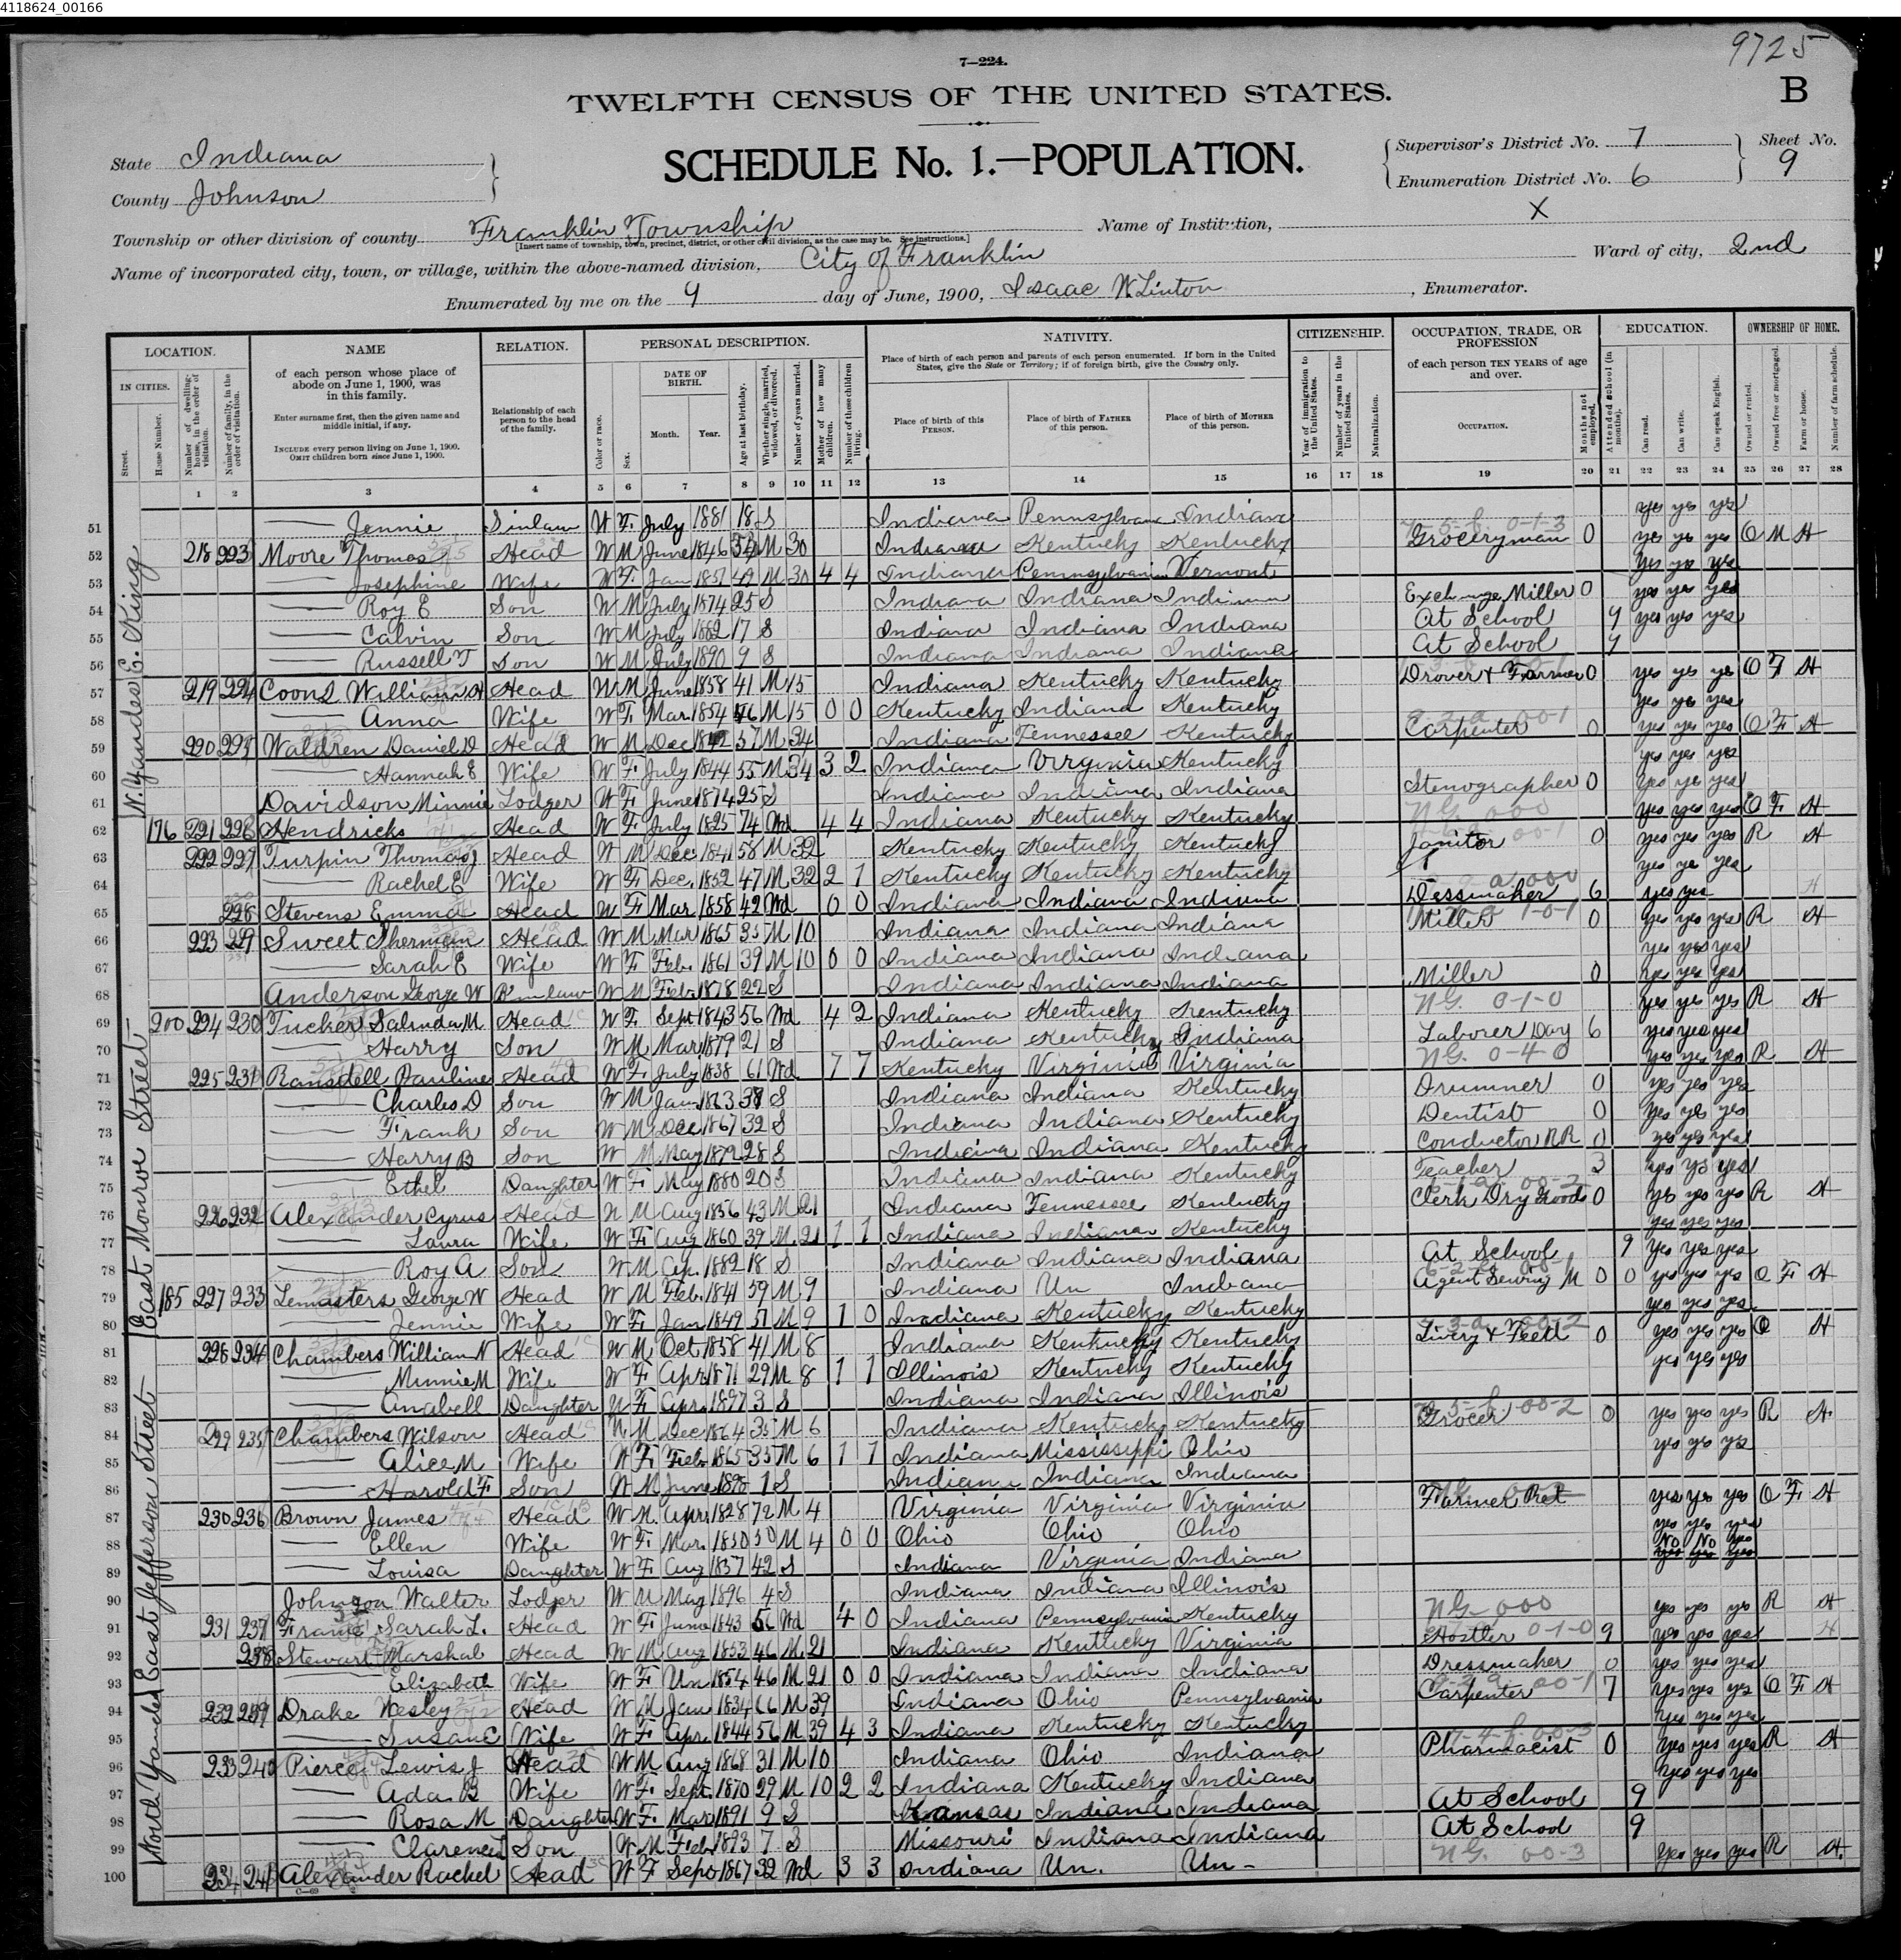 4118624_00166
9725
7—224.
B
TWELFTH CENSUS OF THE UNITED STATES.
SCHEDULE No. 1.—POPULATION.
State Indiana
County Johnson
Supervisor's District No. 7
Enumeration District No. 6
Sheet No.
9
Township or other division of county Franklin Township
[Insert name of township, town, precinct, district, or other civil division, as the case may be. See instructions.]
Name of Institution, X
Name of incorporated city, town, or village, within the above-named division, City of Franklin
Ward of city, 2nd
Enumerated by me on the 9 day of June, 1900, Isaac W. Linton, Enumerator.
LOCATION. NAME RELATION. PERSONAL DESCRIPTION. NATIVITY. CITIZENSHIP. OCCUPATION, TRADE, OR PROFESSION EDUCATION. OWNERSHIP OF HOME.
IN CITIES.
Street.
House Number.
Number of dwelling-house, in the order of visitation.
Number of family, in the order of visitation.
of each person whose place of abode on June 1, 1900, was in this family.
Enter surname first, then the given name and middle initial, if any.
INCLUDE every person living on June 1, 1900.
OMIT children born since June 1, 1900.
Relationship of each person to the head of the family.
Color or race.
Sex.
DATE OF BIRTH.
Month. Year.
Age at last birthday.
Whether single, married, widowed, or divorced.
Number of years married.
Mother of how many children.
Number of these children living.
Place of birth of each person and parents of each person enumerated. If born in the United States, give the State or Territory; if of foreign birth, give the Country only.
Place of birth of this PERSON.
Place of birth of FATHER of this person.
Place of birth of MOTHER of this person.
Year of immigration to the United States.
Number of years in the United States.
Naturalization.
of each person TEN YEARS of age and over.
OCCUPATION.
Months not employed.
Attended school (in months).
Can read.
Can write.
Can speak English.
Owned or rented.
Owned free or mortgaged.
Farm or house.
Number of farm schedule.
1 2 3 4 5 6 7 8 9 10 11 12 13 14 15 16 17 18 19 20 21 22 23 24 25 26 27 28
N. Yandes E. King
East Monroe Street
East Jefferson Street
North Yandes
51 Jennie Sinlaw W F July 1881 18 S Indiana Pennsylvania Indiana yes yes yes
52 218 223 Moore Thomas Head W M June 1846 M 30 Indiana Kentucky Kentucky Groceryman 0 yes yes yes O M H
53 Josephine Wife W F Jan 1851 49 M 30 4 4 Indiana Pennsylvania Vermont yes yes yes
54 Roy E Son W M July 1874 25 S Indiana Indiana Indiana Exchange Miller 0 yes yes yes
55 Calvin Son W M July 1882 17 S Indiana Indiana Indiana At School 9 yes yes yes
56 Russell T Son W M July 1890 9 S Indiana Indiana Indiana At School 9
57 219 224 Coons William H Head W M June 1858 41 M 15 Indiana Kentucky Kentucky Drover & Farmer 0 yes yes yes O F H
58 Anna Wife W F Mar 1854 46 M 15 0 0 Kentucky Indiana Kentucky yes yes yes
59 220 225 Waldren Daniel D Head W M Dec 1842 57 M 34 Indiana Tennessee Kentucky Carpenter 0 yes yes yes O F H
60 Hannah E Wife W F July 1844 55 M 34 3 2 Indiana Virginia Kentucky yes yes yes
61 Davidson Minnie Lodger W F June 1874 25 S Indiana Indiana Indiana Stenographer 0 yes yes yes
62 176 221 226 Hendricks Head W F July 1825 74 Wd 4 4 Indiana Kentucky Kentucky yes yes yes O F H
63 222 227 Turpin Thomas J Head W M Dec 1841 58 M 32 Kentucky Kentucky Kentucky Janitor 0 yes yes yes R H
64 Rachel E Wife W F Dec. 1852 47 M 32 2 1 Kentucky Kentucky Kentucky yes yes yes
65 228 Stevens Emma Head W F Mar 1858 42 Wd 0 0 Indiana Indiana Indiana Dessmaker 6 yes yes H
66 223 229 Sweet Sherman Head W M Mar 1865 35 M 10 Indiana Indiana Indiana Miller 0 yes yes yes R H
67 Sarah E Wife W F Feb. 1861 39 M 10 0 0 Indiana Indiana Indiana yes yes yes
68 Anderson George W B'inlaw W M Feb 1878 22 S Indiana Indiana Indiana Miller 0 yes yes yes
69 200 224 230 Tucker Salinda M Head W F Sept 1843 56 Wd 4 2 Indiana Kentucky Kentucky yes yes yes R H
70 Harry Son W M Mar 1879 21 S Indiana Kentucky Indiana Laborer Day 6 yes yes yes
71 225 231 Ransdell Pauline Head W F July 1838 61 Wd 7 7 Kentucky Virginia Virginia yes yes yes R H
72 Charles D Son W M Jan 1863 S Indiana Indiana Kentucky Drummer 0 yes yes yes
73 Frank Son W M Dec 1867 32 S Indiana Indiana Kentucky Dentist 0 yes yes yes
74 Harry B Son W M May 28 S Indiana Indiana Kentucky Conductor RR 0 yes yes yes
75 Ethel Daughter W F May 1880 20 S Indiana Indiana Kentucky Teacher 3 yes yes yes
76 226 232 Alexander Cyrus Head W M Aug 1856 43 M 21 Indiana Tennessee Kentucky Clerk Dry Goods 0 yes yes yes R H
77 Laura Wife W F Aug 1860 39 M 21 1 1 Indiana Indiana Kentucky yes yes yes
78 Roy A Son W M Ap. 1882 18 S Indiana Indiana Indiana At School 9 yes yes yes
79 185 227 233 Lemasters George W Head W M Feb. 1841 59 M 9 Indiana Un Indiana Agent Sewing M 0 0 yes yes yes O F H
80 Jennie Wife W F Jan 1849 51 M 9 1 0 Indiana Kentucky Kentucky yes yes yes
81 228 234 Chambers William N Head W M Oct 1858 41 M 8 Indiana Kentucky Kentucky Livery & Feed 0 yes yes yes O H
82 Minnie M Wife W F Apr 1871 29 M 8 1 1 Illinois Kentucky Kentucky yes yes yes
83 Anabell Daughter W F Apr 1897 3 S Indiana Indiana Illinois
84 229 235 Chambers Wilson Head W M Dec 1864 35 M 6 Indiana Kentucky Kentucky Grocer 0 yes yes yes R H
85 Alice M Wife W F Feb 1865 35 M 6 1 1 Indiana Mississippi Ohio yes yes yes
86 Harold F Son W M June 1898 1 S Indiana Indiana Indiana
87 230 236 Brown James Head W M Apr 1828 72 M 4 Virginia Virginia Virginia Farmer Ret yes yes yes O F H
88 Ellen Wife W F Mar. 1850 50 M 4 0 0 Ohio Ohio Ohio yes yes yes
89 Louisa Daughter W F Aug 1857 42 S Indiana Virginia Indiana No No yes
90 Johnson Walter Lodger W M May 1896 4 S Indiana Indiana Illinois
91 231 237 Frame Sarah L. Head W F June 1843 56 Wd 4 0 Indiana Pennsylvania Kentucky yes yes yes R H
92 238 Stewart Marshal Head W M Aug 1853 46 M 21 Indiana Kentucky Virginia Hostler 9 yes yes yes H
93 Elizabeth Wife W F Un 1854 46 M 21 0 0 Indiana Indiana Indiana Dressmaker 0 yes yes yes
94 232 239 Drake Wesley Head W M Jan 1834 66 M 39 Indiana Ohio Pennsylvania Carpenter 7 yes yes yes O F H
95 Susan C Wife W F Apr. 1844 56 M 39 4 3 Indiana Kentucky Kentucky yes yes yes
96 233 240 Pierce Lewis J Head W M Aug 1868 31 M 10 Indiana Ohio Indiana Pharmacist 0 yes yes yes R H
97 Ada B Wife W F Sept. 1870 29 M 10 2 2 Indiana Kentucky Indiana yes yes yes
98 Rosa M Daughter W F Mar 1891 9 S Kansas Indiana Indiana At School 9
99 Clarence L Son W M Feb 1893 7 S Missouri Indiana Indiana At School 9
100 234 241 Alexander Rachel Head W F Sept 1867 32 Wd 3 3 Indiana Un. Un yes yes yes R H.